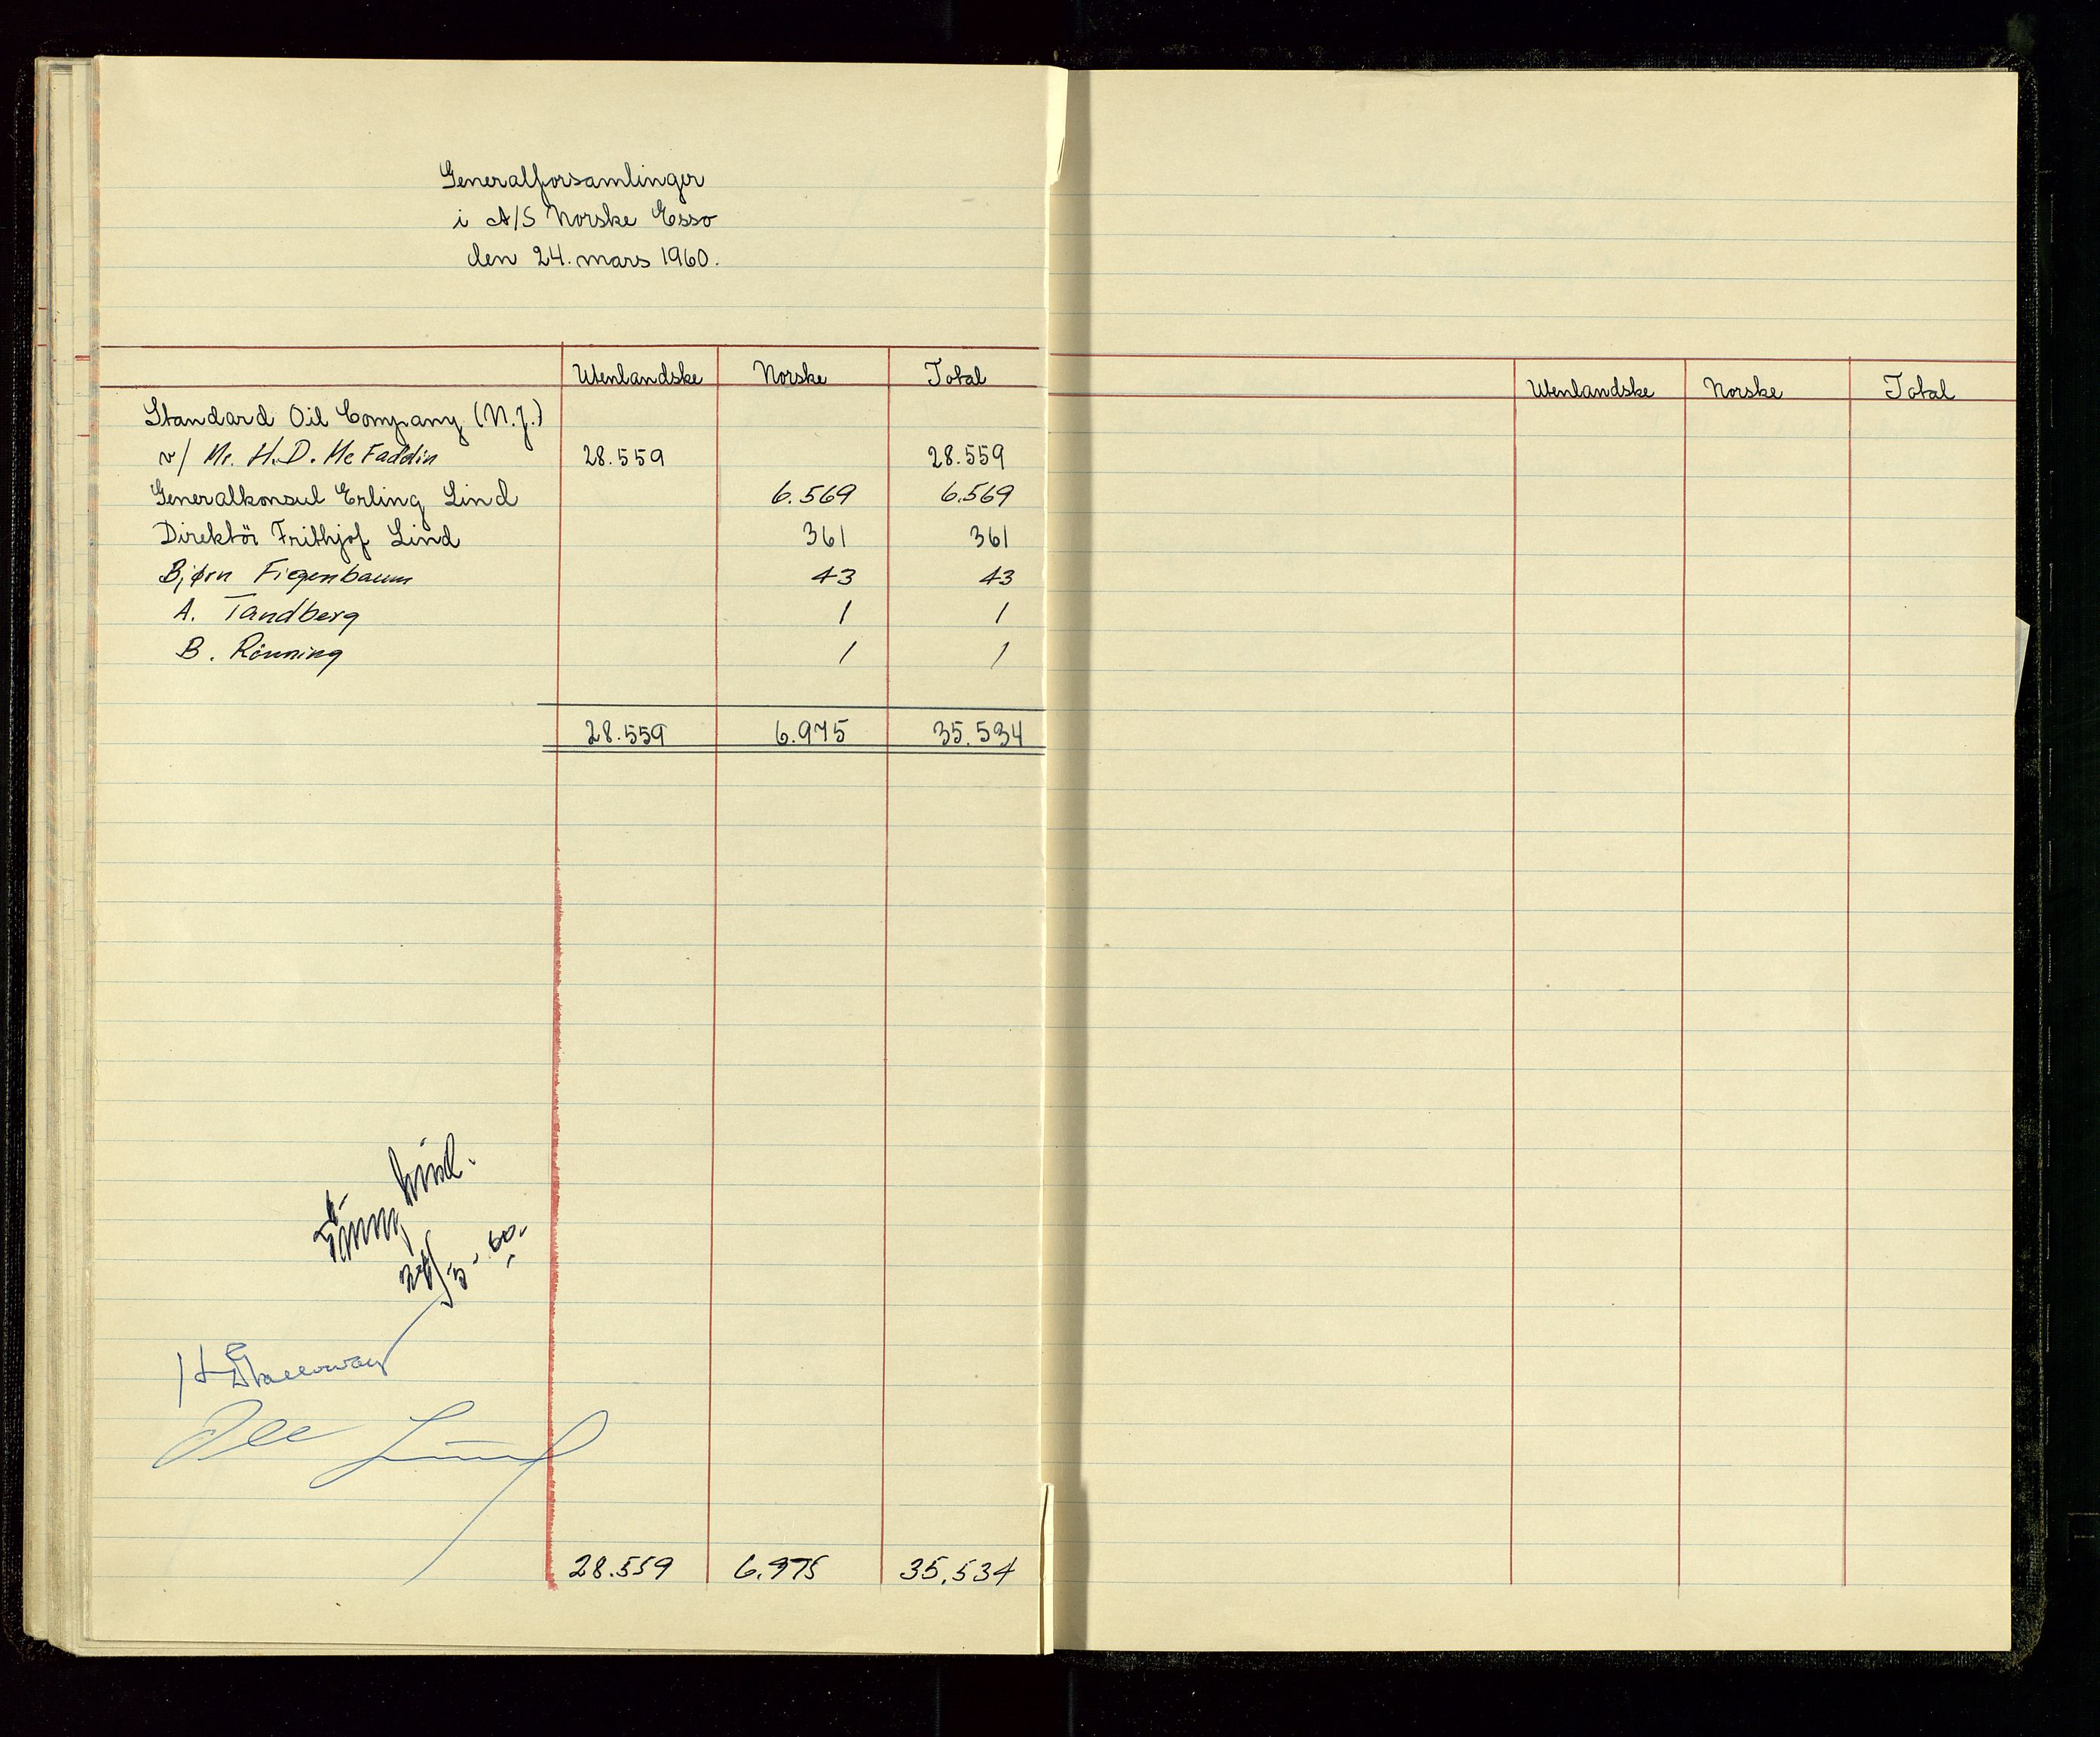 Generalforsamlinger
i A/S Norske Esso
den 24. mars 1960.
Utenlandske Norske Total
Standard Oil Company (N.J.)
v/ Mr. H.D. Mc Faddin 28.559 28.559
Generalkonsul Erling Lind 6.569 6.569
Direktör Frithjof Lind 361 361
Bjørn Fiegenbaum 43 43
A. Tandberg 1 1
B. Rönning 1 1
28.559 6.975 35.534
Lind.
24/3-60.
28.559 6.975 35.534
Utenlandske Norske Total